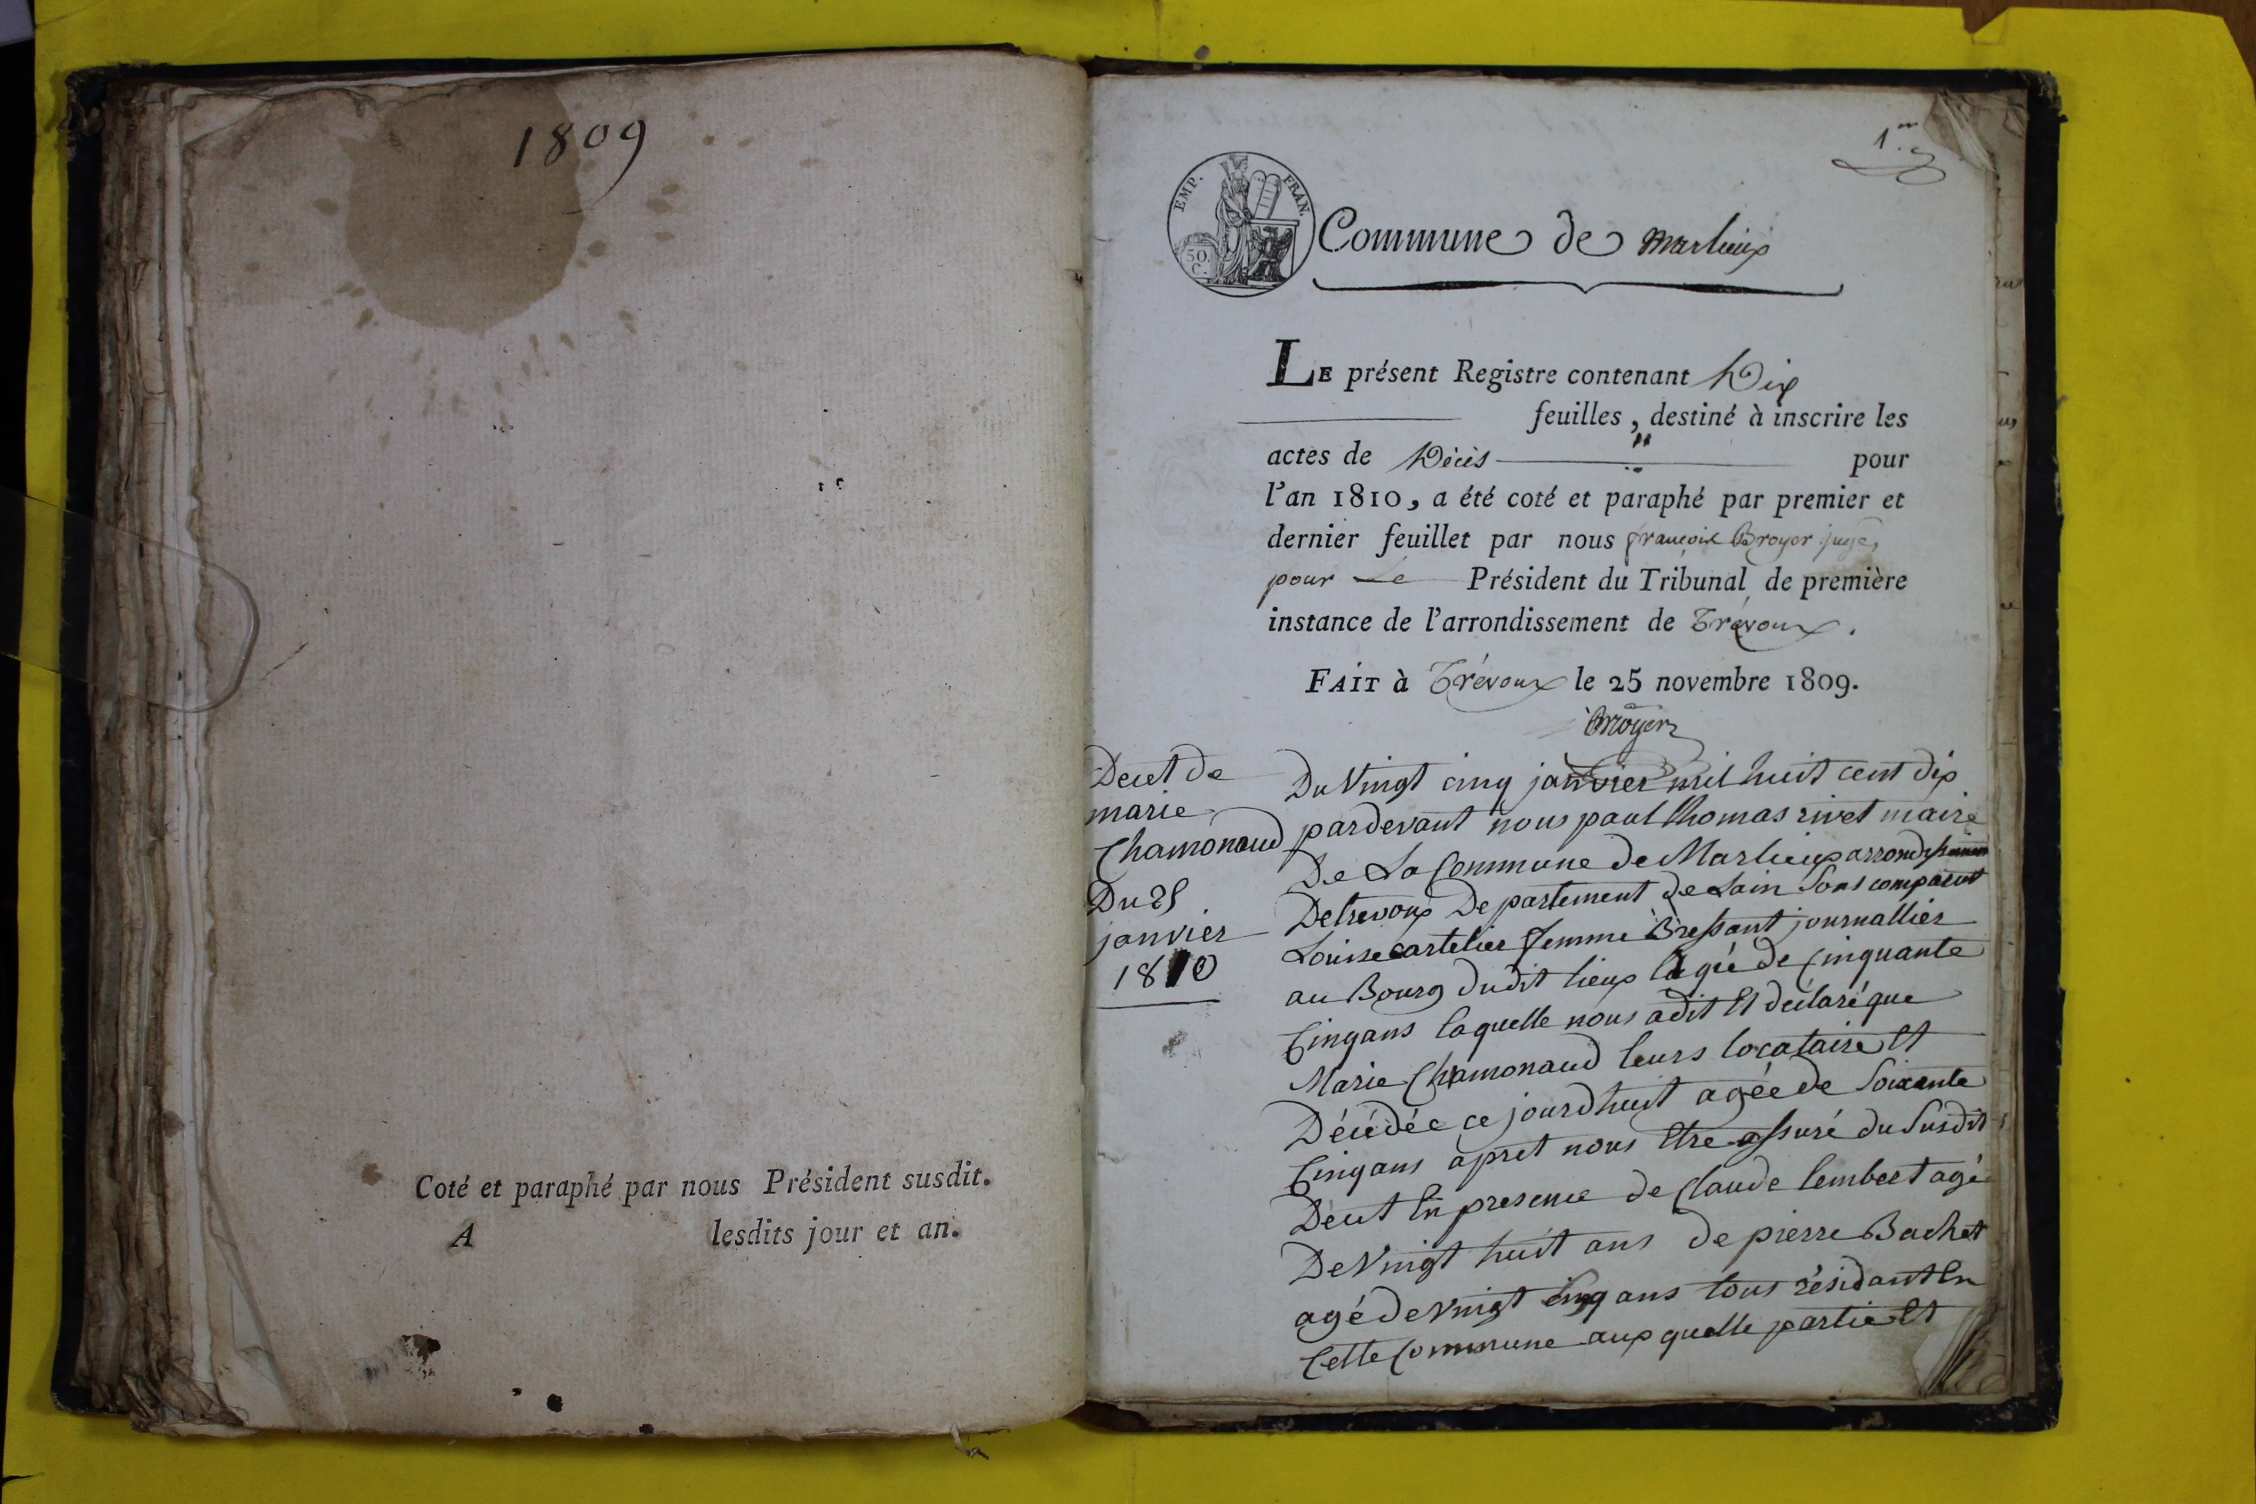 1809
Coté et paraphé par nous Président susdit.
A lesdits jour et an.
1.er
EMP. FRAN.
50.
C.
Commune de Marlieux
LE présent Registre contenant Dix
feuilles, destiné à inscrire les
actes de Décès pour
l'an 1810, a été coté et paraphé par premier et
dernier feuillet par nous françois Broyer juge,
pour Le Président du Tribunal de première
instance de l'arrondissement de Trévoux.
FAIT à Trévoux le 25 novembre 1809.
Broyer
Decet de
marie
Chamonaud
Du 25
janvier
1810
Du Vingt cinq janvier mil huit cent dix
pardevant nous paul thomas rivet maire
De La Commune de Marlieux arrondissement
Detrevoux Departement de Lain Sont comparut
Louise Cartelier femme Bressant journallier
au Bourg dudit lieux agée de Cinquante
Cinqans laquelle nous adit Et déclaré que
Marie Chamonaud leurs locataire Et
Décédée ce jourdhuit agée de Soixante
Cinqans apret nous Etre assuré du Susdit
Decet En presence de Claude lembert agé
De Vingt huit ans de pierre Bachet
agé de Vingt Cinq ans tous résidant En
Cette Commune aux quelle partie Et